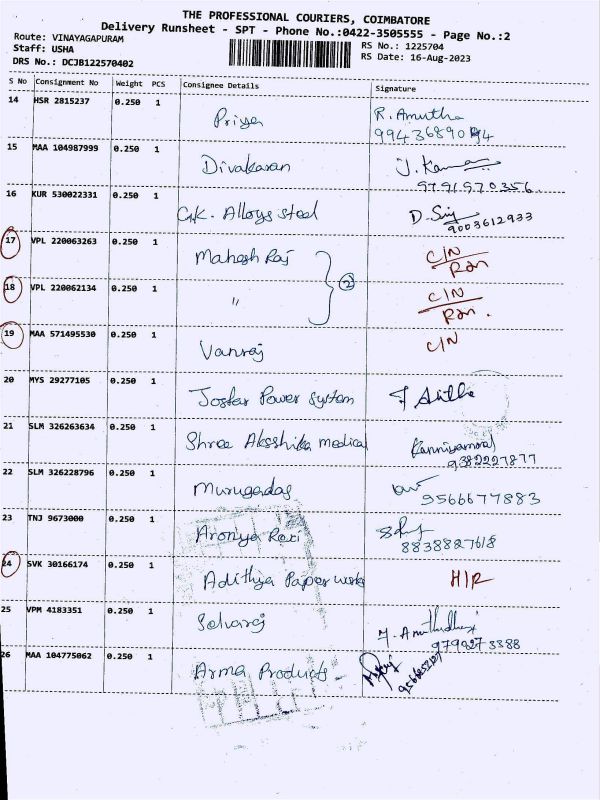 THE PROFESSIONAL COURIERS, COIMBATORE
Delivery Runsheet - SPT - Phone No.:0422-3505555 - Page No.:2
Route: VINAYAGAPURAM
Staff: USHA
RS No.: 1225704
DRS No.: DCJB122570402
RS Date: 16-Aug-2023
S No Consignment No Weight PCS Consignee Details Signature
14 HSR 2815237 0.250 1 Priya R. Amutha
15 MAA 104987999 0.250 1 Divakaran
9791970356
16 KUR 530022331 0.250 1 G.K. Alloys steel
9003612933
17 VPL 220063263 0.250 1 Mahesh Raj C/N
18 VPL 220062134 0.250 1 " 2 C/N
19 MAA 571495530 0.250 1 Vanraj C/N
20 MYS 29277105 0.250 1 Jostar Power system
21 SLM 326263634 0.250 1 Shree Aksshika medical
9382227877
22 SLM 326228796 0.250 1 Murugadas
9566677883
23 TNJ 9673000 0.250 1
8838827618
24 SVK 30166174 0.250 1 Adithya Paper works
25 VPM 4183351 0.250 1 Selvaraj
26 MAA 104775062 0.250 1 Arma Products